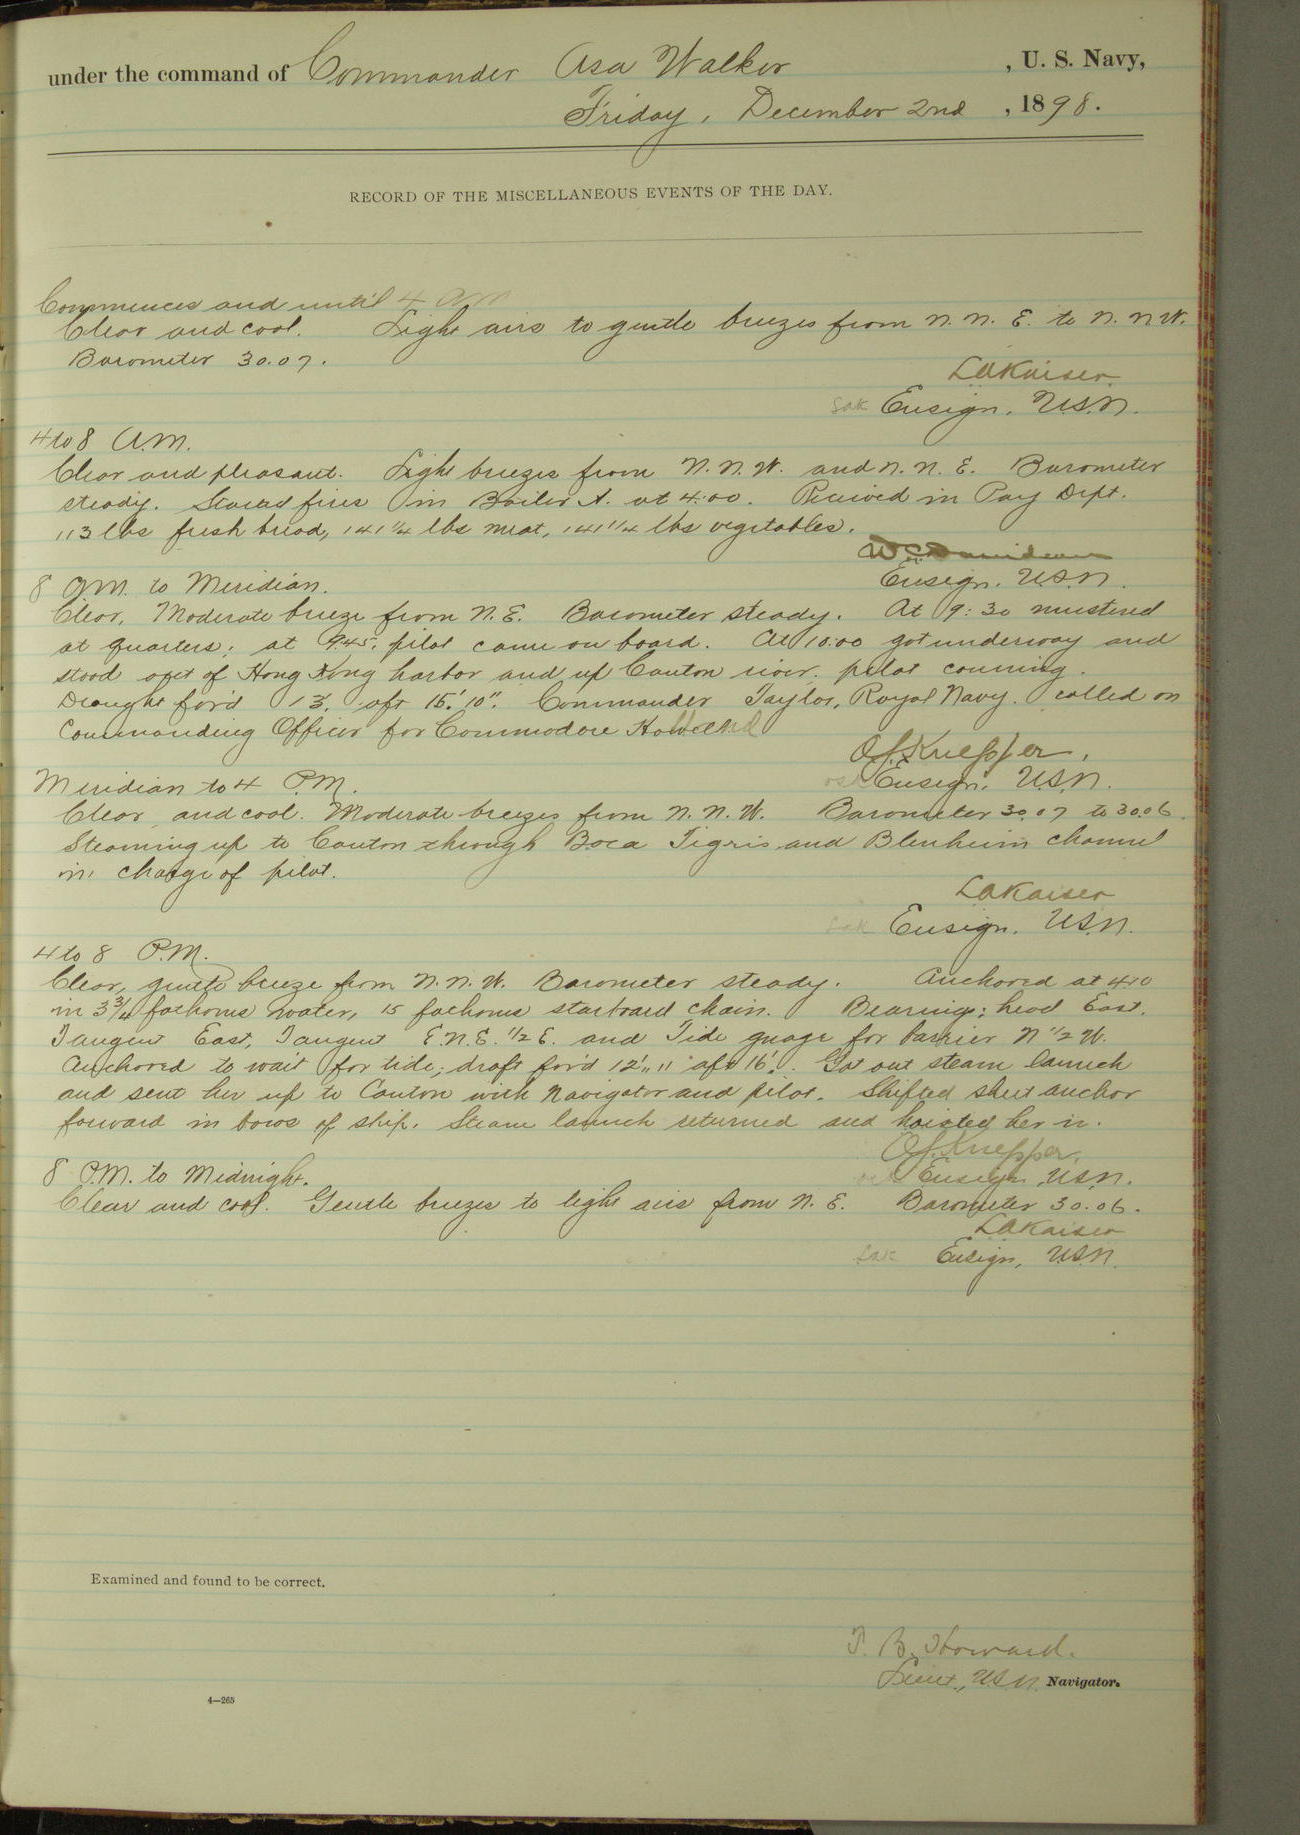 under the command of Commander Asa Walker , U. S. Navy,
Friday, December 2nd , 1898.
RECORD OF THE MISCELLANEOUS EVENTS OF THE DAY.
Commences and until 4 am
Clear and cool. Light airs to gentle breezes from N. N. E. to N. N W.
Barometer 30.07.
LAKaiser
LAK Ensign. U.S.N.
4 to 8 A.M.
Clear and pleasant. Light breezes from N. N. W. and N. N. E. Barometer
steady. fires in Boiler A. at 4:00. Received in Pay Dept.
113 lbs fresh bread, 141 1/4 lbs meat, 141 1/4 lbs vegetables.
W C Davidson
Ensign. U.S.N.
8 am. to Meridian.
Clear, Moderate breeze from N. E. Barometer steady. At 9:30 mustered
at quarters; at 9.45. pilot came on board. At 10:00 got underway and
stood out of Hong Kong harbor and up Canton river. pilot conning.
Draught for'd 13'. aft 15'. 10". Commander Taylor, Royal Navy. called on
Commanding Officer for Commodore Holland
O.S. Knepper,
osk Ensign. U.S.N.
Meridian to 4 P.M.
Clear and cool. Moderate breezes from N. N. W. Barometer 30.07 to 30.06.
Steaming up to Canton through Boca Tigris and Blenheim channel
in charge of pilot.
LAKaiser
LAK Ensign. U.S.N.
4 to 8 P.M.
Clear, gentle breeze from N. N. W. Barometer steady. Anchored at 4.10
in 3 3/4 fathoms water, 15 fathoms starboard chain. Bearings: head East.
Tangent East, Tangent E.N.E. 1/2 E. and Tide guage for barrier N 1/2 W.
Anchored to wait for tide; draft for'd 12'„ 11" aft 16'. Got out steam launch
and sent her up to Canton with Navigator and pilot. Shifted sheet anchor
forward in bows of ship. Steam launch returned and hoisted her in.
O.S. Knepper,
osk Ensign, U.S.N.
8 P.M. to Midnight.
Clear and cool. Gentle breezes to light airs from N. E. Barometer 30.06.
LAKaiser
LAK Ensign, U.S.N.
Examined and found to be correct.
T. B. Howard.
Lieut., U.S.N. Navigator.
4—265